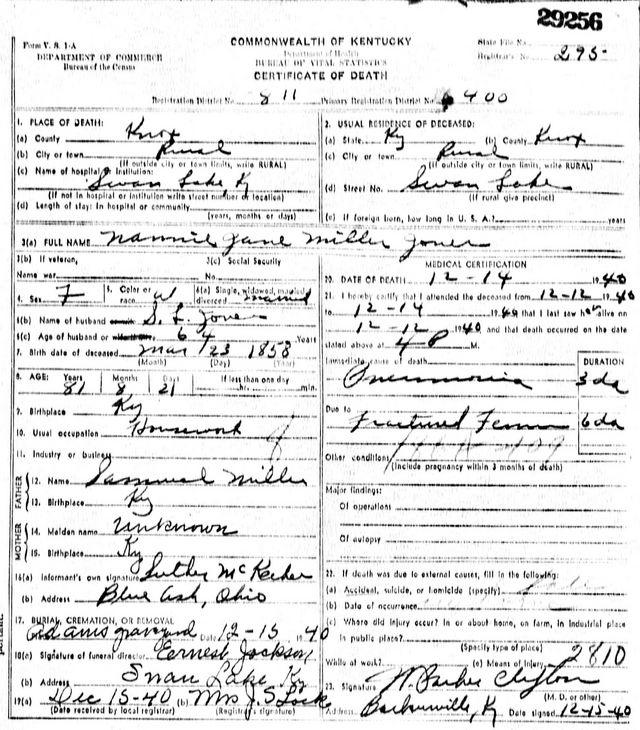 29256
Form V. S. 1-A
DEPARTMENT OF COMMERCE
Bureau of the Census
COMMONWEALTH OF KENTUCKY
Department of Health
BUREAU OF VITAL STATISTICS
CERTIFICATE OF DEATH
State File No.
Registrar's No. 295
Registration District No. 811 Primary Registration District No. 400
1. PLACE OF DEATH:
(a) County Knox
(b) City or town Rural
(If outside city or town limits, write RURAL)
(c) Name of hospital or institution:
Swan Lake Ky
(If not in hospital or institution write street number or location)
(d) Length of stay: In hospital or community
(years, months or days)
2. USUAL RESIDENCE OF DECEASED:
(a) State Ky (b) County Knox
(c) City or town Rural
(If outside city or town limits, write RURAL)
(d) Street No. Swan Lake
(If rural give precinct)
(e) If foreign born, how long in U. S. A.? years
3(a) FULL NAME Nannie Jane Miller Jones
3(b) If veteran,
Name war
3(c) Social Security
No.
4. Sex F 5. Color or race W 6(a) Single, widowed, married, divorced Married
6(b) Name of husband S. L. Jones
6(c) Age of husband 64 Years
7. Birth date of deceased Mar 23 1858
(Month) (Day) (Year)
8. AGE: Years Months Days If less than one day
81 8 21 hr. min.
9. Birthplace Ky
10. Usual occupation Housework
11. Industry or business
FATHER
12. Name Samuel Miller
13. Birthplace Ky
MOTHER
14. Maiden name Unknown
15. Birthplace Ky
16(a) Informant's own signature Luther
(b) Address Blue Ash, Ohio
17. BURIAL, CREMATION, OR REMOVAL
Adams graveyard Date 12-15 1940
18(a) Signature of funeral director Ernest Jackson
(b) Address Swan Lake Ky
19(a) Dec 15-40 (b) Mrs J. S. Locke
(Date received by local registrar) (Registrar's signature)
MEDICAL CERTIFICATION
20. DATE OF DEATH 12-14 1940
21. I hereby certify that I attended the deceased from 12-12 1940
to 12-14 1940 that I last saw her alive on
12-12 1940 and that death occurred on the date
stated above at 4 P M.
Immediate cause of death DURATION
Pneumonia 3 da
Due to
Fractured Femur 6 da
Other conditions
(Include pregnancy within 3 months of death)
Major findings:
Of operations
Of autopsy
22. If death was due to external causes, fill in the following:
(a) Accident, suicide, or homicide (specify)
(b) Date of occurrence
(c) Where did injury occur? In or about home, on farm, in industrial place
in public place?
(Specify type of place)
While at work? (e) Means of injury 2810
23. Signature W. Parker Clifton
(M. D. or other)
Address Barbourville, Ky Date signed 12-15-40